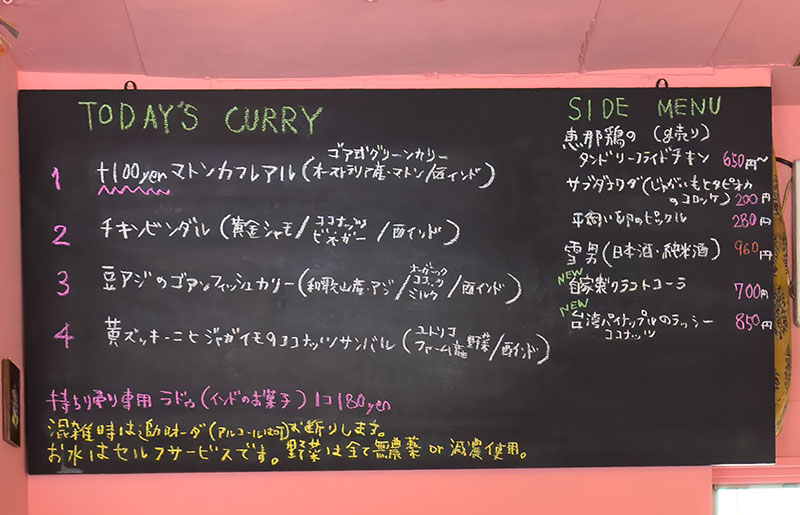 TODAY'S CURRY
1 +100yen マトンカフレアル(ゴア式グリーンカリー オーストラリア産・マトン/西インド)
2 チキンビンダル(黄金シャモ/ココナッツビネガー/西インド)
3 豆アジのゴアンフィッシュカリー(和歌山産・アジ/オーガニックココナッツミルク/西インド)
4 黄ズッキーニとジャガイモのココナッツサンバル(ユトリコファーム産野菜/西インド)
持ち帰り専用 ラドゥ(インドのお菓子) 1コ180yen
混雑時は追加オーダ(アルコールは可)お断りします。
お水はセルフサービスです。野菜は全て無農薬 or 減農使用。
SIDE MENU
恵那鶏の(g売り)
タンドリーフライドチキン 650円〜
サブダナワダ(じゃがいもとタピオカ
のコロッケ) 200円
平飼い卵のピックル 280円
雪男(日本酒・純米酒) 960円
NEW
自家製クラフトコーラ 700円
NEW
台湾パイナップルのラッシー 850円
ココナッツ